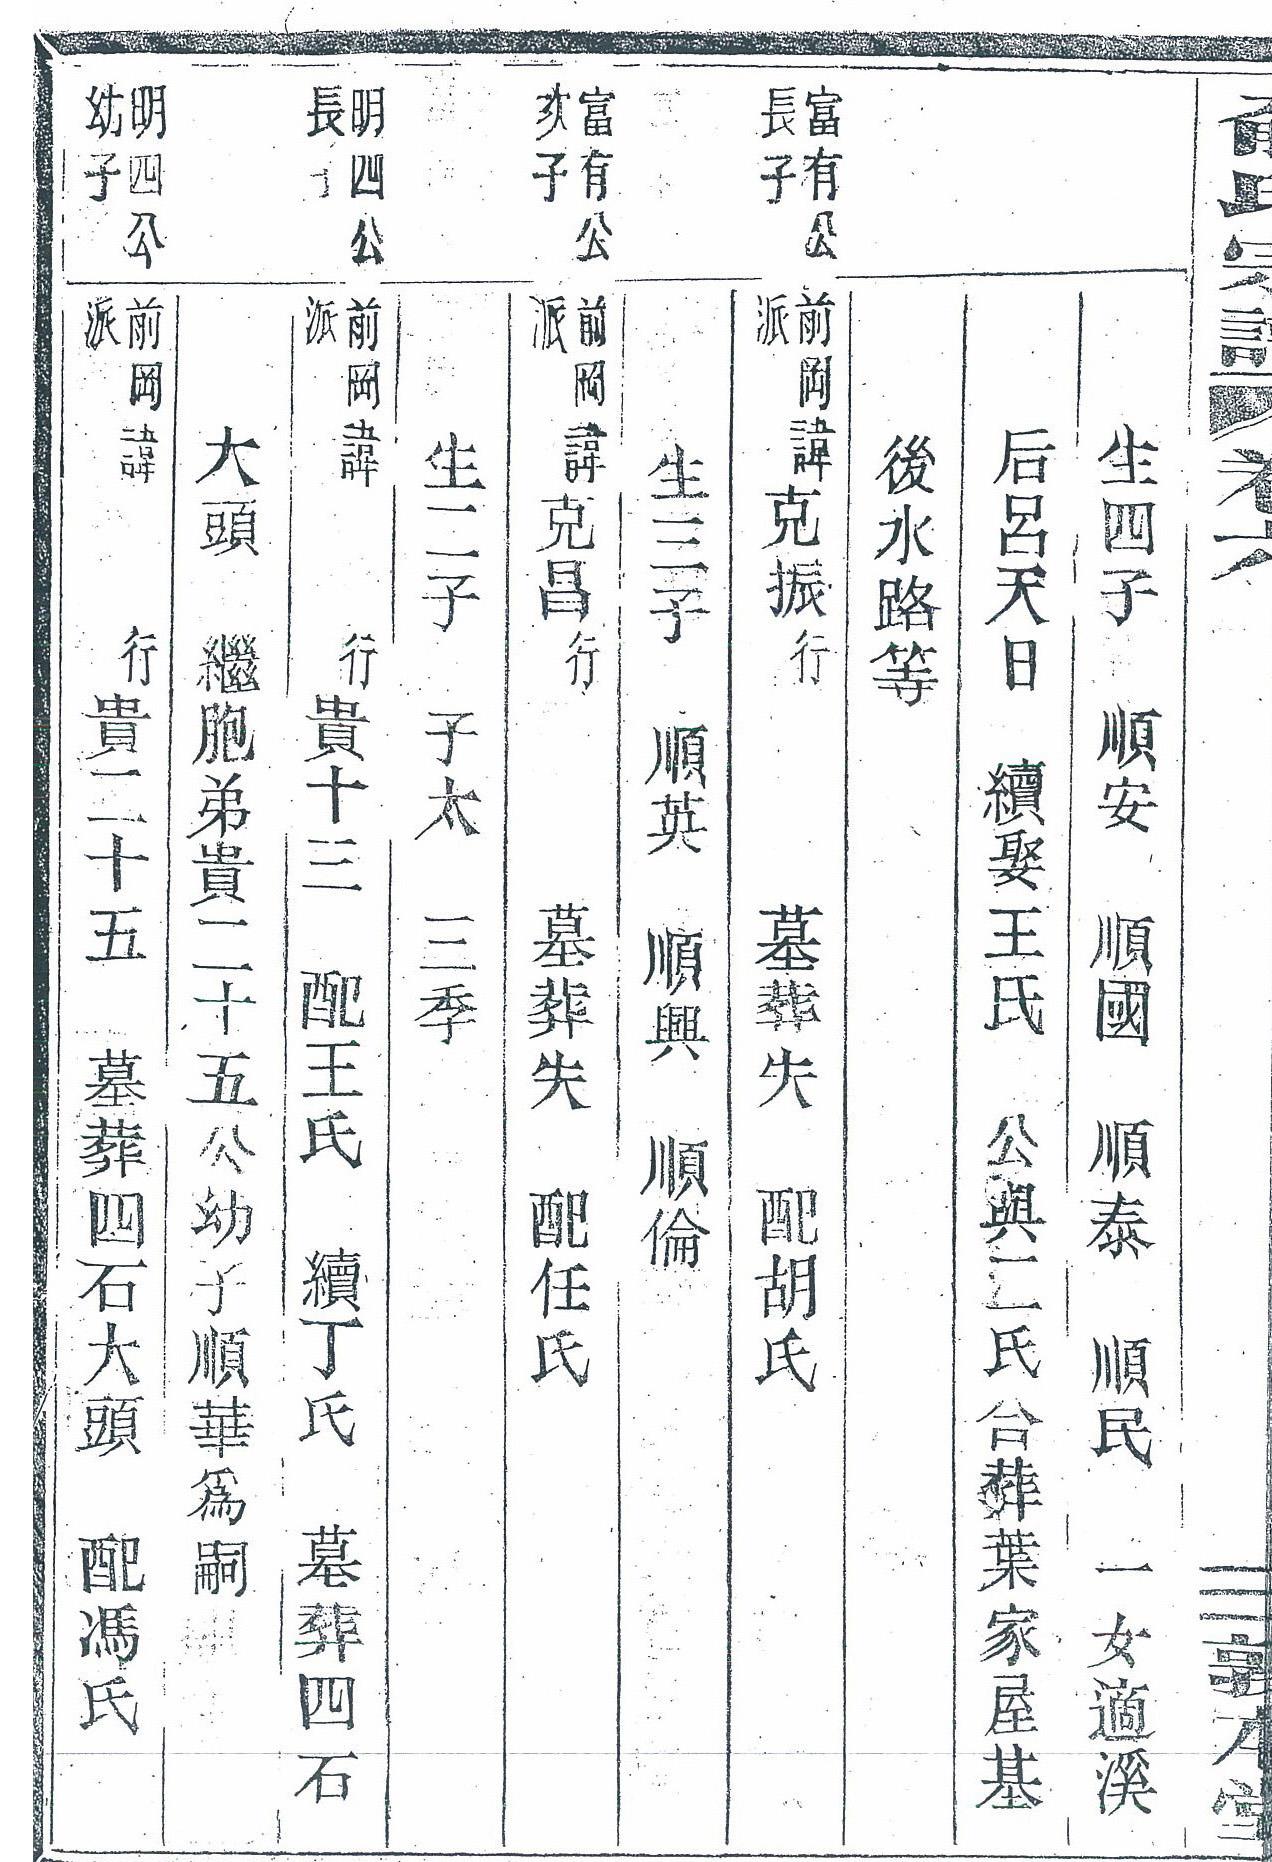 氏宗譜 卷六 三 敦本堂
生四子 順安 順國 順泰 順民 一女適溪
后呂天日 續娶王氏 公與二氏合葬葉家屋基
後水路等
富有公長子 前岡派 諱克振 行 墓葬失 配胡氏
生三子 順英 順興 順倫
富有公次子 前岡派 諱克昌 行 墓葬失 配任氏
生二子 子太 三季
明四公長子 前岡派 諱 行貴十三 配王氏 續丁氏 墓葬四石
大頭 繼胞弟貴二十五公幼子順華爲嗣
明四公幼子 前岡派 諱 行貴二十五 墓葬四石大頭 配馮氏